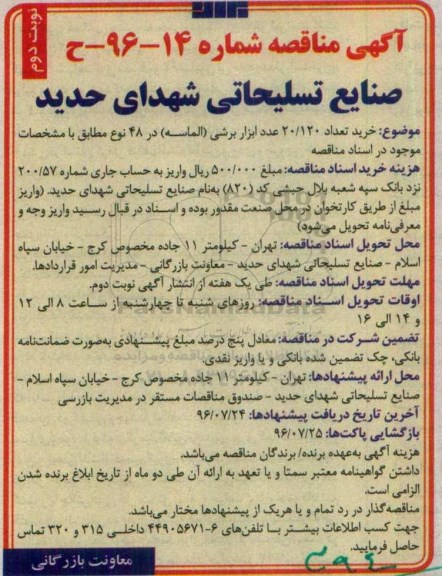 نوبت دوم
آگهی مناقصه شماره ۱۴-۹۶-ح
صنایع تسلیحاتی شهدای حدید
موضوع: خرید تعداد ۲۰/۱۲۰ عدد ابزار برشی (الماسه) در ۴۸ نوع مطابق با مشخصات
موجود در اسناد مناقصه
هزینه خرید اسناد مناقصه: مبلغ ۵۰۰/۰۰۰ ریال واریز به حساب جاری شماره ۲۰۰/۵۷
نزد بانک سپه شعبه بلال حبشی کد (۸۲۰) به‌نام صنایع تسلیحاتی شهدای حدید. (واریز
مبلغ از طریق کارتخوان در محل صنعت مقدور بوده و اسناد در قبال رسید واریز وجه و
معرفی‌نامه تحویل می‌شود)
محل تحویل اسناد مناقصه: تهران - کیلومتر ۱۱ جاده مخصوص کرج - خیابان سپاه
اسلام - صنایع تسلیحاتی شهدای حدید - معاونت بازرگانی - مدیریت امور قراردادها.
مهلت تحویل اسناد مناقصه: طی یک هفته از انتشار آگهی نوبت دوم.
اوقات تحویل اسناد مناقصه: روزهای شنبه تا چهارشنبه از ساعت ۸ الی ۱۲
و ۱۴ الی ۱۶
تضمین شرکت در مناقصه: معادل پنج درصد مبلغ پیشنهادی به‌صورت ضمانت‌نامه
بانکی، چک تضمین شده بانکی و یا واریز نقدی
محل ارائه پیشنهادها: تهران - کیلومتر ۱۱ جاده مخصوص کرج - خیابان سپاه اسلام -
صنایع تسلیحاتی شهدای حدید - صندوق مناقصات مستقر در مدیریت بازرسی
آخرین تاریخ دریافت پیشنهادها: ۹۶/۰۷/۲۴
بازگشایی پاکت‌ها: ۹۶/۰۷/۲۵
هزینه آگهی به‌عهده برنده/ برندگان مناقصه می‌باشد.
داشتن گواهینامه معتبر سمتا و یا تعهد به ارائه آن طی دو ماه از تاریخ ابلاغ برنده شدن
الزامی است.
مناقصه‌گذار در رد تمام و یا هریک از پیشنهادها مختار می‌باشد.
جهت کسب اطلاعات بیشتر با تلفن‌های ۶-۴۴۹۰۵۶۷۱ داخلی ۳۱۵ و ۳۲۰ تماس
حاصل فرمایید.
معاونت بازرگانی